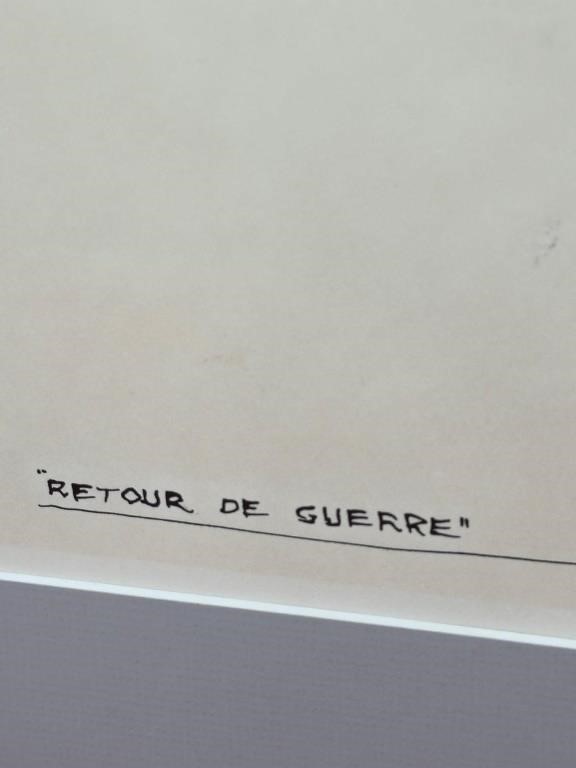 "RETOUR DE GUERRE"